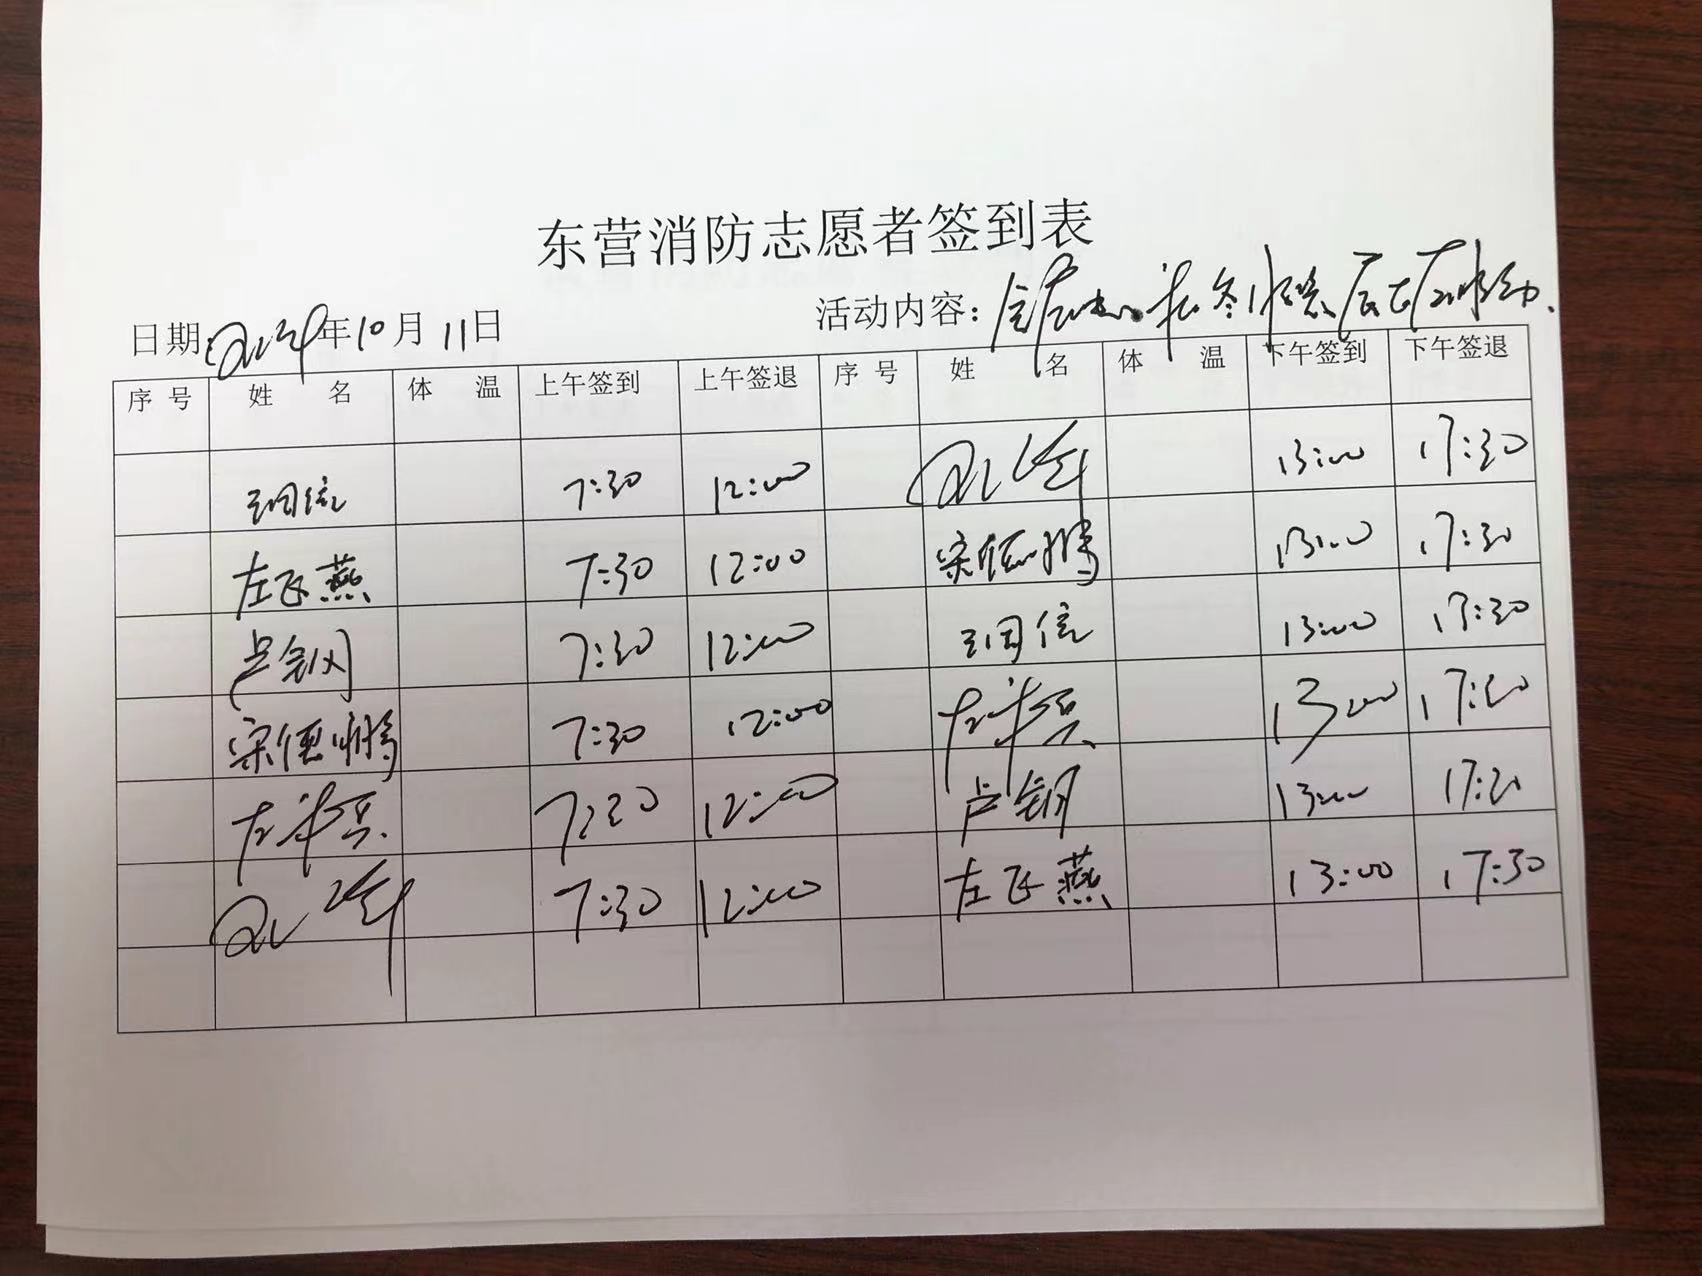 东营消防志愿者签到表
日期: 年10月11日 活动内容:
序号 姓 名 体 温 上午签到 上午签退 序号 姓 名 体 温 下午签到 下午签退
7:30 12:00 13:00 17:30
左飞燕 7:30 12:00 宋德鹏 13:00 17:30
卢钢 7:30 12:00 13:00 17:30
宋德鹏 7:30 12:00 左华兵 13:00 17:30
左华兵 7:30 12:00 卢钢 13:00 17:30
7:30 12:00 左飞燕 13:00 17:30